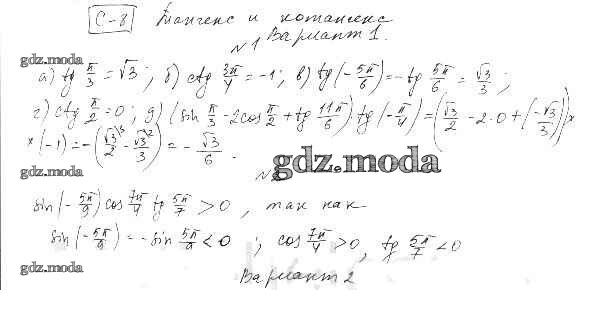 С-8 Тангенс и котангенс
Вариант 1.
№1
gdz.moda
а) tg π/3 = √3; б) ctg 3π/4 = -1; в) tg(-5π/6) = -tg 5π/6 = √3/3;
gdz.moda
г) ctg π/2 = 0; д) (sin π/3 - 2cos π/2 + tg 11π/6) tg(-π/4) = (√3/2 - 2·0 + (-√3/3)) ×
× (-1) = -(√3/2 - √3/3) = - √3/6.
gdz.moda
gdz.moda
№2
sin(-5π/9) cos 7π/4 tg 5π/7 > 0, так как
gdz.moda
sin(-5π/9) = -sin 5π/9 < 0; cos 7π/4 > 0, tg 5π/7 < 0
gdz.moda
Вариант 2